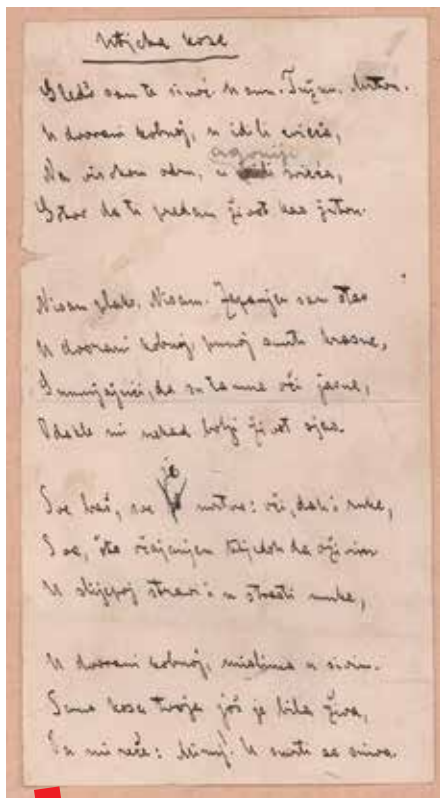 Utjeha kose
Gledo sam te sinoć. U snu. Tužnu. Mrtvu.
U dvorani kobnoj, u idili cvieća,
agoniji
Na visokom odru, u svieća,
Gotov da ti predam život kao žrtvu.
Nisam plako. Nisam. Zapanjen sam stao
U dvorani kobnoj, punoj smrti krasne,
Sumnjajući, da su tamne oči jasne,
Odakle mi nekad bolji život sjao.
Sve baš, sve je mrtvo: oči, dah i ruke,
Sve, što očajanjem htjedoh da oživim
U slijepoj stravi i u strasti muke,
U dvorani kobnoj, mislima u sivim.
Samo kosa tvoja još je bila živa,
Pa mi reče: Miruj! U smrti se sniva.